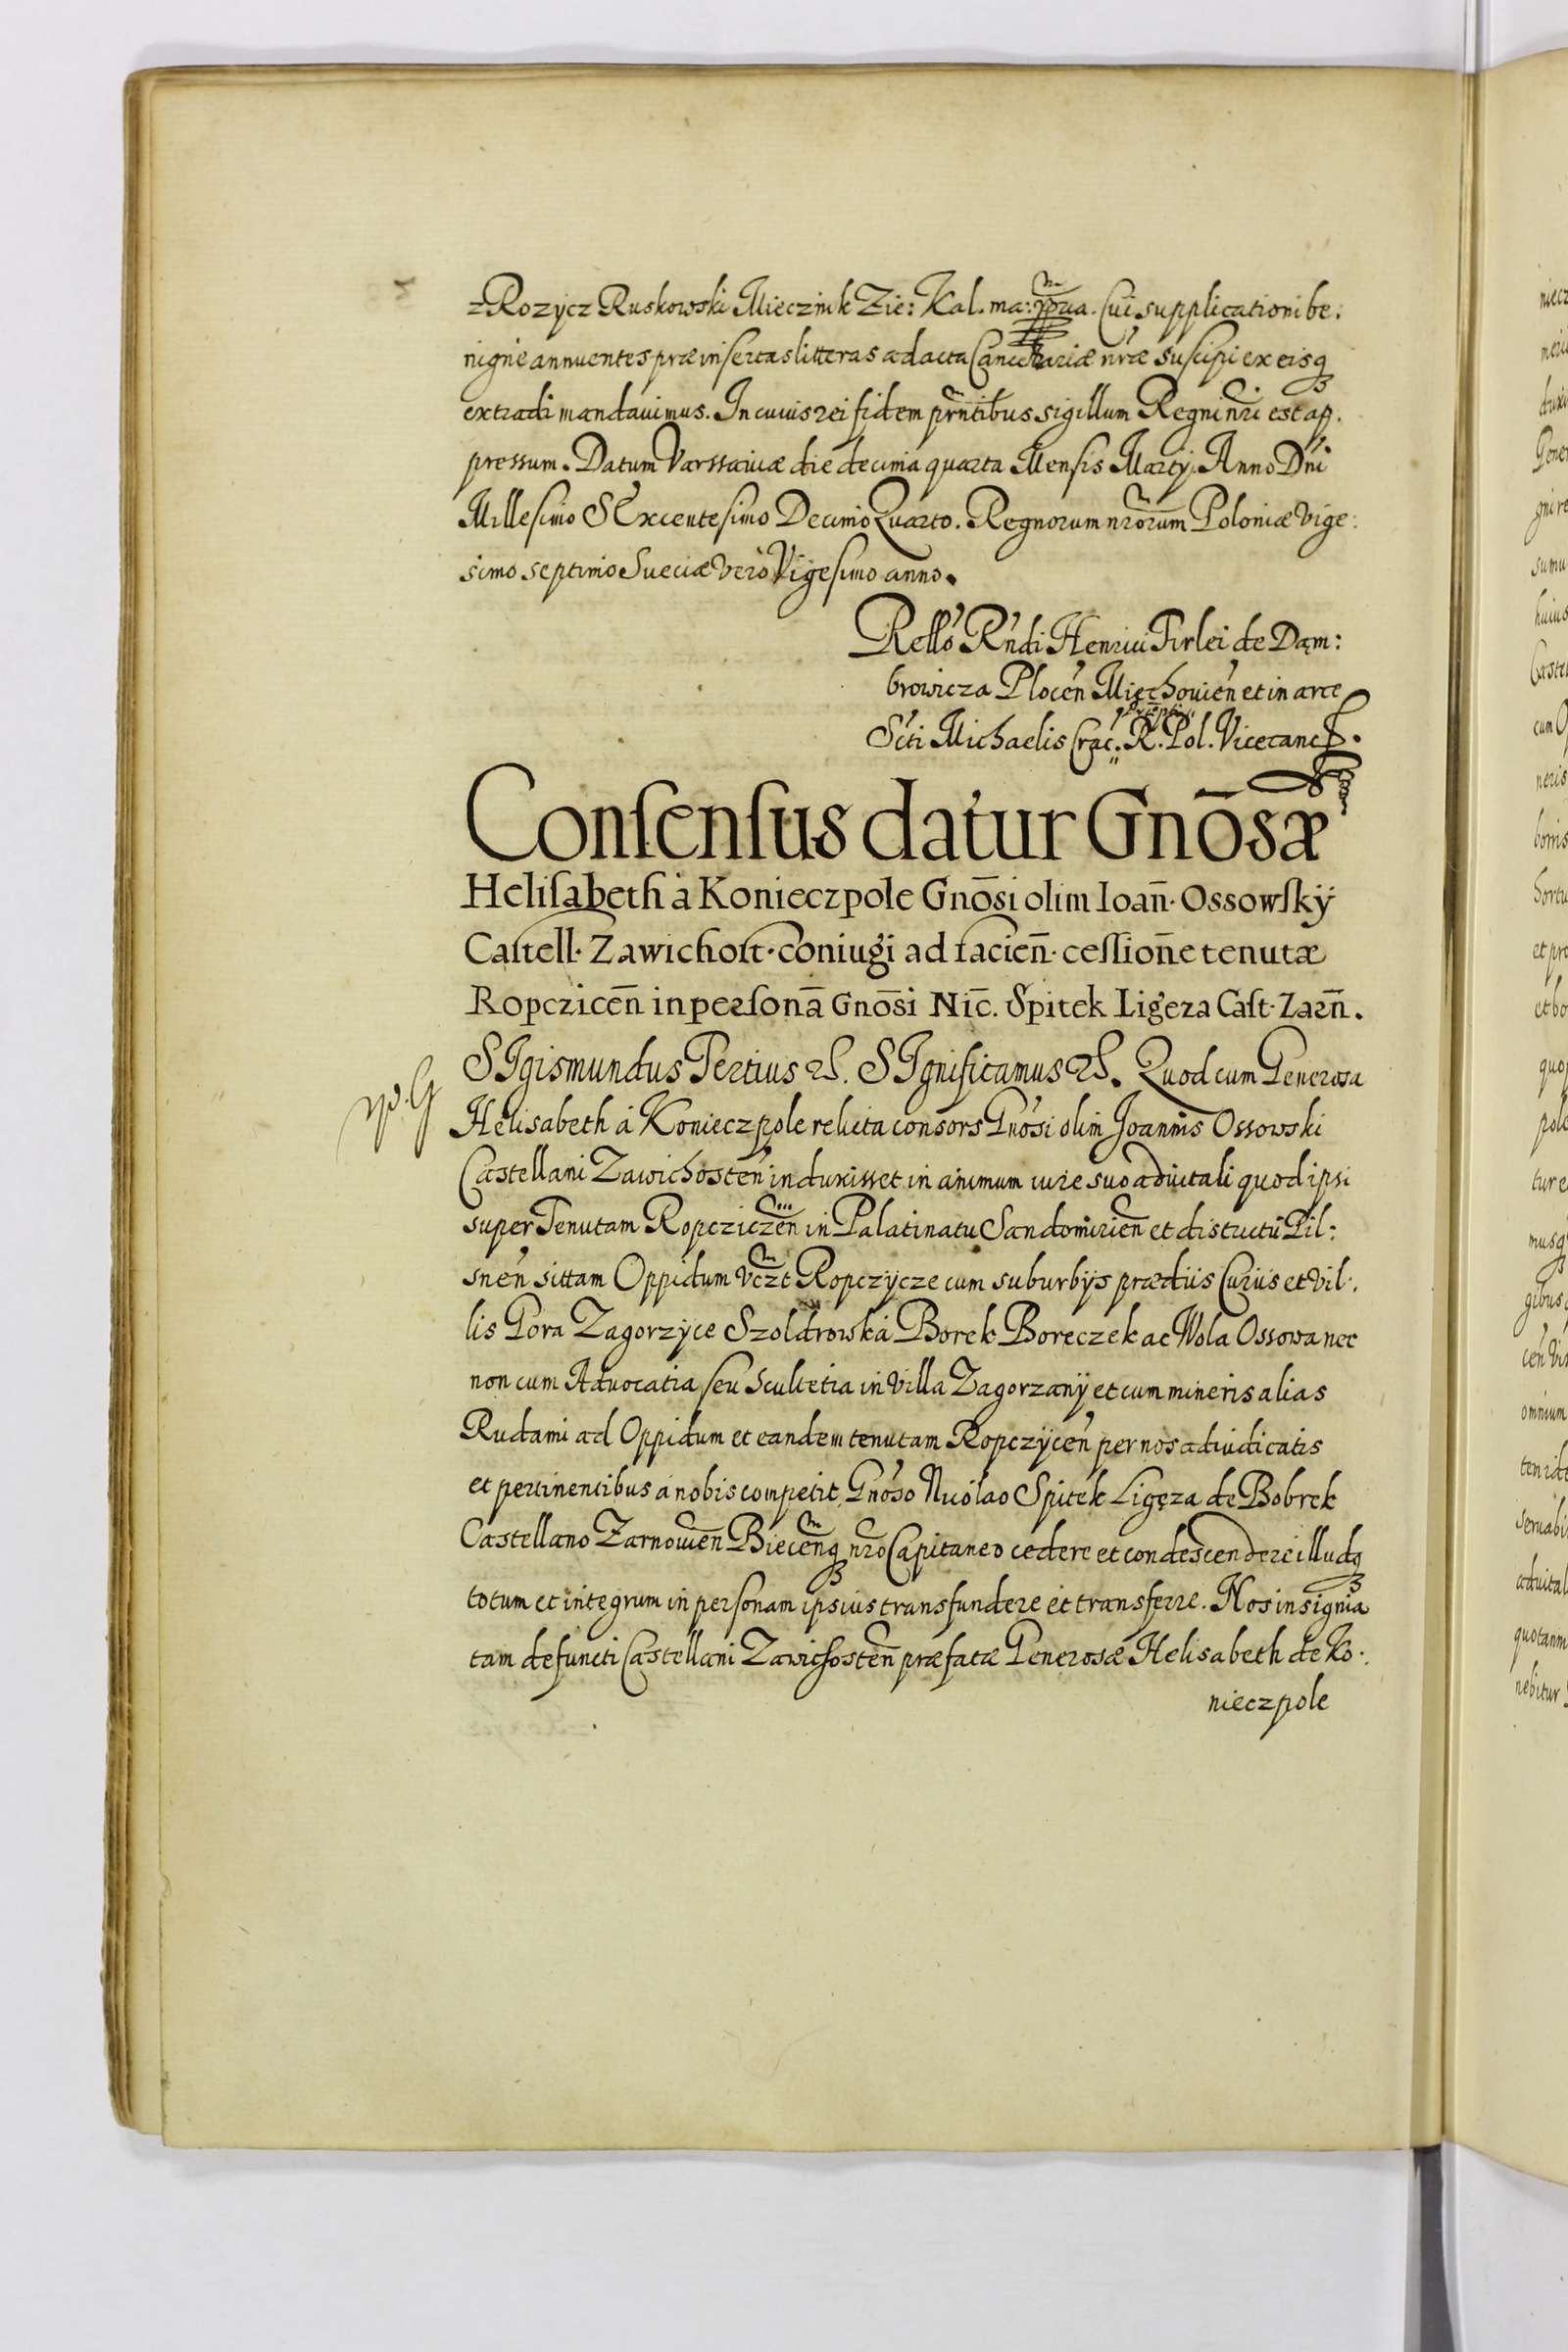 z Rozycz Ruskowski Miecznik Zie: Kal. ma: ppria. Cui supplicationi be:
nigne annuentes præinsertas litteras ad acta Cancellariæ nr̃æ suscipi ex eisq̃
extradi mandauimus. In cuius rei fidem pr̃ntibus sigillum Regni nr̃i est ap.
pressum. Datum Varssauiæ die decima quarta Mensis Martÿ. Anno Dñi
Millesimo SExcentesimo Decimo Quarto. Regnorum nr̃orum Poloniæ Vige:
simo septimo Sueciæ Verò Vigesimo anno.
Rello Rñdi Henrici Firlei de Dąm:
browicza Plocen̄ Miechouien̄ et in arce
Sc̃ti Michaelis Crac. R. Pol. Vicecanc̃
Consensus datur Gnōsæ
Helisabeth à Konieczpole Gnōsi olim Ioañ. Ossowskÿ
Castell. Zawichost. coniugi ad facieñ. cessione tenutæ
Ropcziceñ in personā Gnōsi Nic̄. Spitek Ligeza Cast. Zarñ.
SIgismundus Tertius &. SIgnificamus &. Quod cum Generosa
Helisabeth à Konieczpole relicta consors Gnosi olim Joannis Ossowski
Castellani Zawichosteñ induxisset in animum iure suo aduitali quod ipsi
super Tenutam Ropcziczeñ in Palatinatu Sandomirieñ et districtu Pil:
sneñ sittam Oppidum vc̃zt Ropczycze cum suburbÿs prædiis Curiis et vil.
lis Gora Zagorzÿce Szoldrowska Borek Boreczek ac Wola Ossowa nec
non cum Aduocatia seu Scultetia in Villa Zagorzanÿ et cum mineris alias
Rudami ad Oppidum et eandem tenutam Ropczÿceñ per nos adiudicatis
et pertinentibus a nobis competit, Gnoso Nicolao Spitek Ligęza de Bobrek
Castellano Zarnowieñ Biecenq̃ nr̃o Capitaneo cedere et condescendere illudq̃
totum et integrum in personam ipsius transfundere et transferre. Nos insignia
tam defuncti Castellani Zawichosteñ præfatæ Generosæ Helisabeth de Ko:
nieczpole